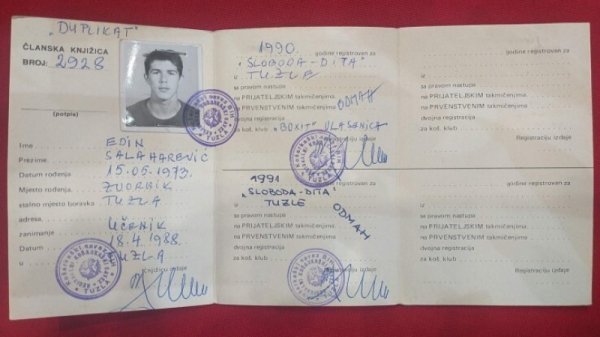 „DUPLIKAT"
ČLANSKA KNJIŽICA
BROJ: 2928
(potpis)
Ime EDIN
Prezime SALAHAREVIĆ
Datum rođenja 15.05.1973.
Mjesto rođenja ZVORNIK
stalno mjesto boravka TUZLA
adresa
zanimanje UČENIK
Datum 18.4.1988.
u TUZLA
knjižicu izdaje
1990. godine registrovan za
„SLOBODA-DITA"
iz TUZLA
sa pravom nastupa
na PRIJATELJSKIM takmičenjima ODMAH
na PRVENSTVENIM takmičenjima
dvojna registracija
za koš. klub „BOXIT" VLASENICA
Registraciju izdaje
1991 godine registrovan za
„SLOBODA-DITA"
iz TUZLE
sa pravom nastupa ODMAH
na PRIJATELJSKIM takmičenjima
na PRVENSTVENIM takmičenjima
dvojna registracija
za koš. klub
Registraciju izdaje
godine registrovan za
iz
sa pravom nastupa
na PRIJATELJSKIM takmičenjima.
na PRVENSTVENIM takmičenjima.
dvojna registracija
za koš. klub
Registraciju izdaje
godine registrovan za
iz
sa pravom nastupa
na PRIJATELJSKIM takmičenjima.
na PRVENSTVENIM takmičenjima.
dvojna registracija
za koš. klub
Registraciju izdaje
TUZLA